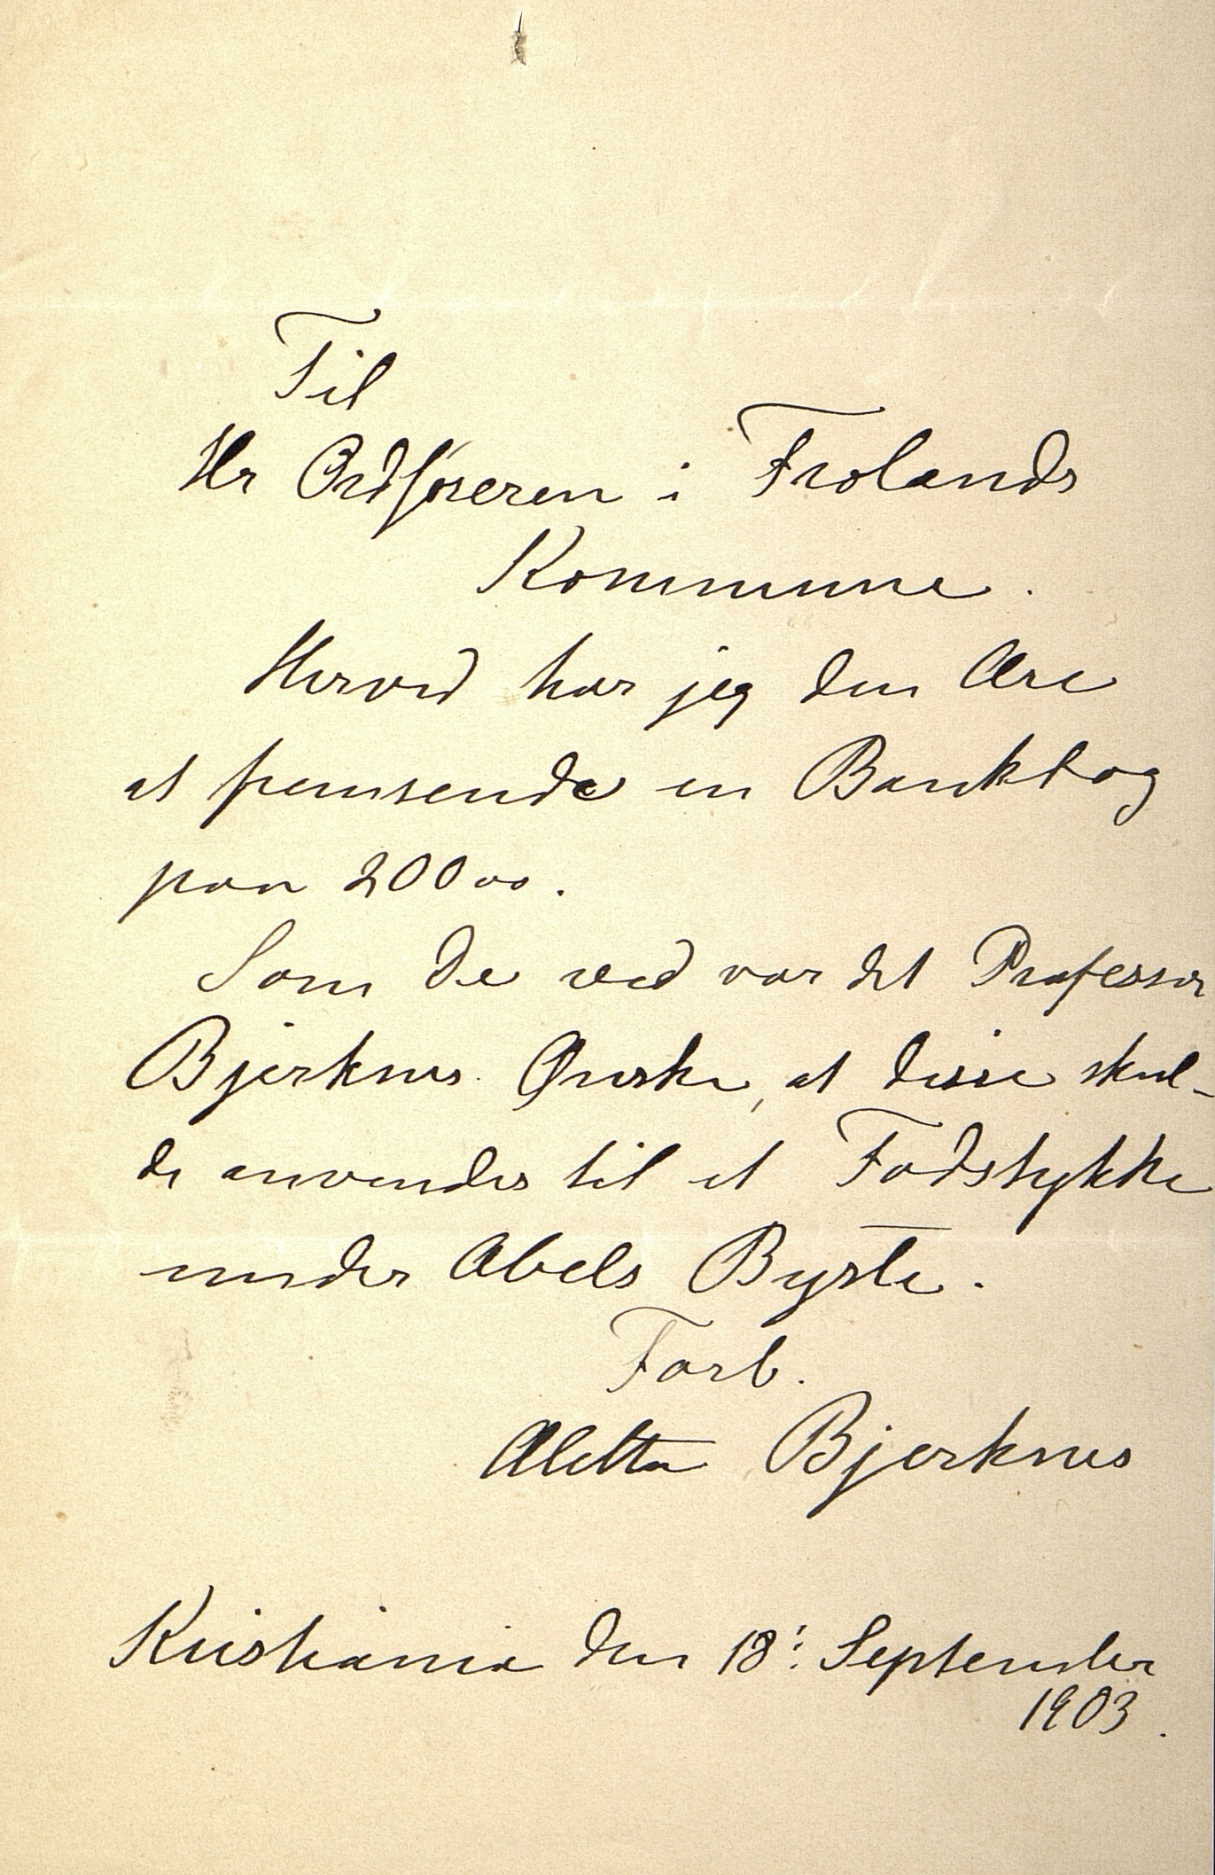 Til
Hr Ordføreren i Frolands
Kommune.
Herved har jeg den Ære
at fremsende en Bankbog
paa 200 00.
Som De ved var det Professor
Bjerknes Ønske, at disse skul-
de anvendes til et Fodstykke
under Abels Byste.
Forb.
Aletta Bjerknes
Kristiania den 18: September
1903.